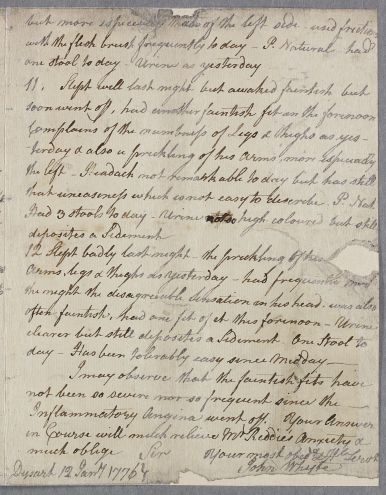 but more especially those of the left side - used friction
with the flesh brush frequently to day - P. Natural - had
one stool to day - Urine as yesterday
11. Slept well last night but awaked faintish but
soon went off, had another faintish fit in the forenoon
Complains of the numbness of Legs & thighs as yes-
terday & also a prickling of his arms, more especially
the left - Headach not remarkable to day but has still
that uneasiness which is not easy to describe - P. Nat.
Had 3 stools to day - Urine not so high coloured but still
deposites a Sediment
12 Slept badly last night - the prickling of his
Arms, Legs & thighs as yesterday - had frequently in
the night the disagreeable sensation in his head - was also
often faintish, had one fit of it this forenoon - Urine
clearer but still deposites a Sediment - One Stool to
day - Has been tolerably easy since Midday
I may observe that the faintish fits have
not been so severe nor so frequent since the
Inflammatory Angina went off. Your Answer
in Course will much relieve Mr Riddies Anxiety &
much oblige Sir Your most obedt Servt
John Whyte
Dysart 12 Janry